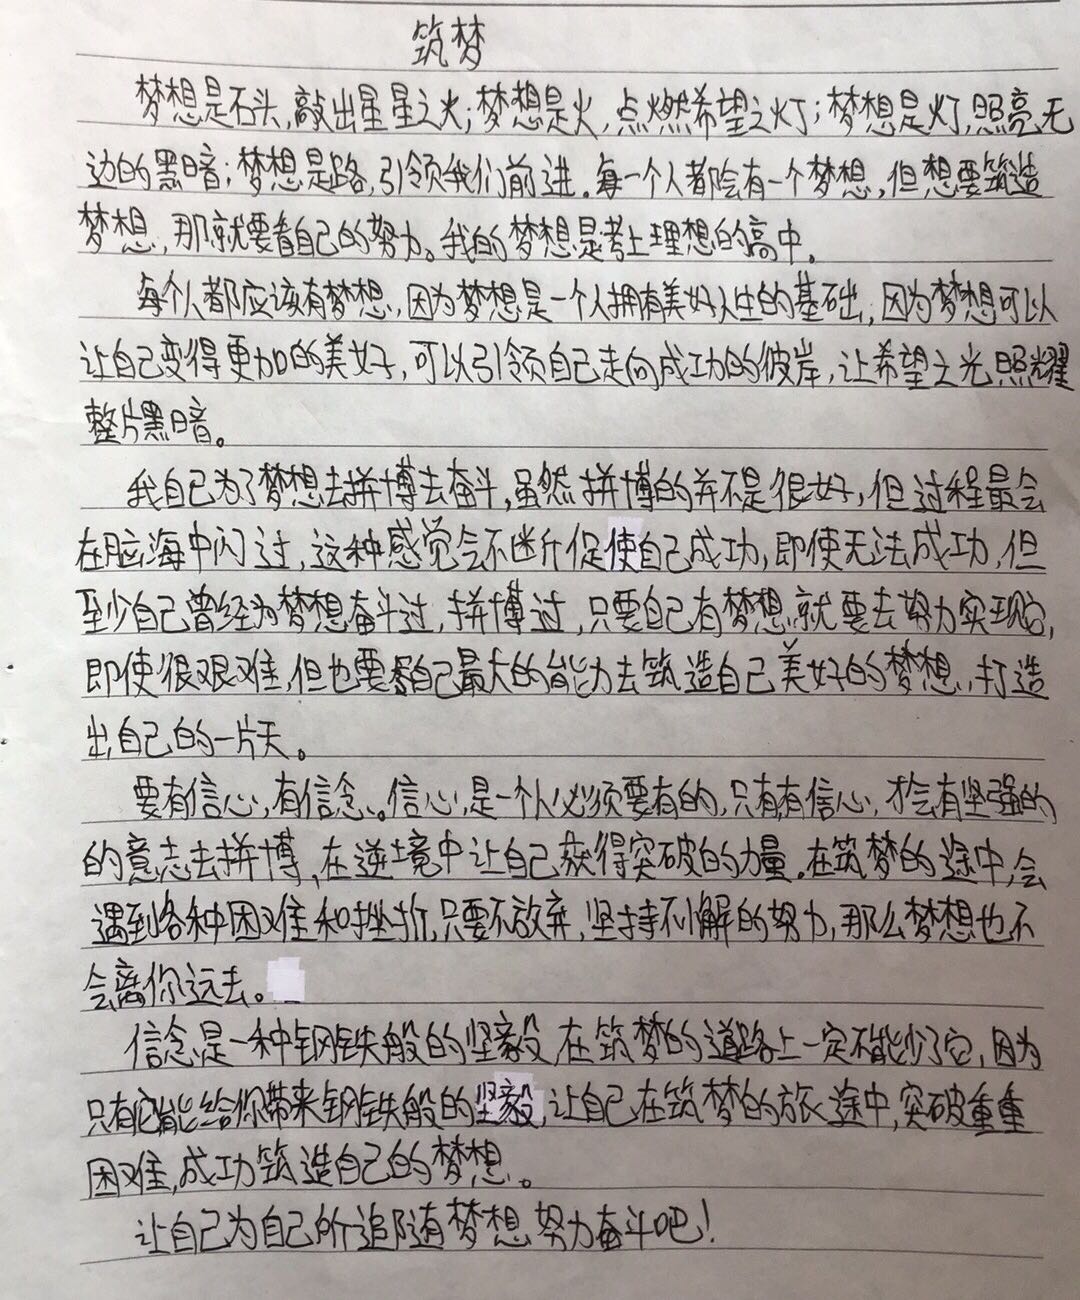 筑梦
梦想是石头,敲出星星之火;梦想是火,点燃希望之灯;梦想是灯,照亮无
边的黑暗;梦想是路,引领我们前进。每一个人都会有一个梦想,但想要筑造
梦想,那就要看自己的努力。我的梦想是考上理想的高中。
每个人都应该有梦想,因为梦想是一个人拥有美好人生的基础,因为梦想可以
让自己变得更加的美好,可以引领自己走向成功的彼岸,让希望之光照耀
整片黑暗。
我自己为了梦想去拼博去奋斗,虽然拼博的并不是很好,但过程最会
在脑海中闪过,这种感觉会不断促使自己成功,即使无法成功,但
至少自己曾经为梦想奋斗过,拼博过,只要自己有梦想就要去努力实现它,
即使很艰难,但也要尽自己最大的能力去筑造自己美好的梦想,打造
出自己的一片天。
要有信心,有信念。信心,是一个人必须要有的,只有有信心,才会有坚强的
的意志去拼博,在逆境中让自己获得突破的力量。在筑梦的途中,会
遇到各种困难和挫折,只要不放弃,坚持不懈的努力,那么梦想也不
会离你远去。
信念是一种钢铁般的坚毅,在筑梦的道路上一定不能少了它,因为
只有它能给你带来钢铁般的坚毅,让自己在筑梦的旅途中,突破重重
困难,成功筑造自己的梦想。
让自己为自己所追随有梦想努力奋斗吧!